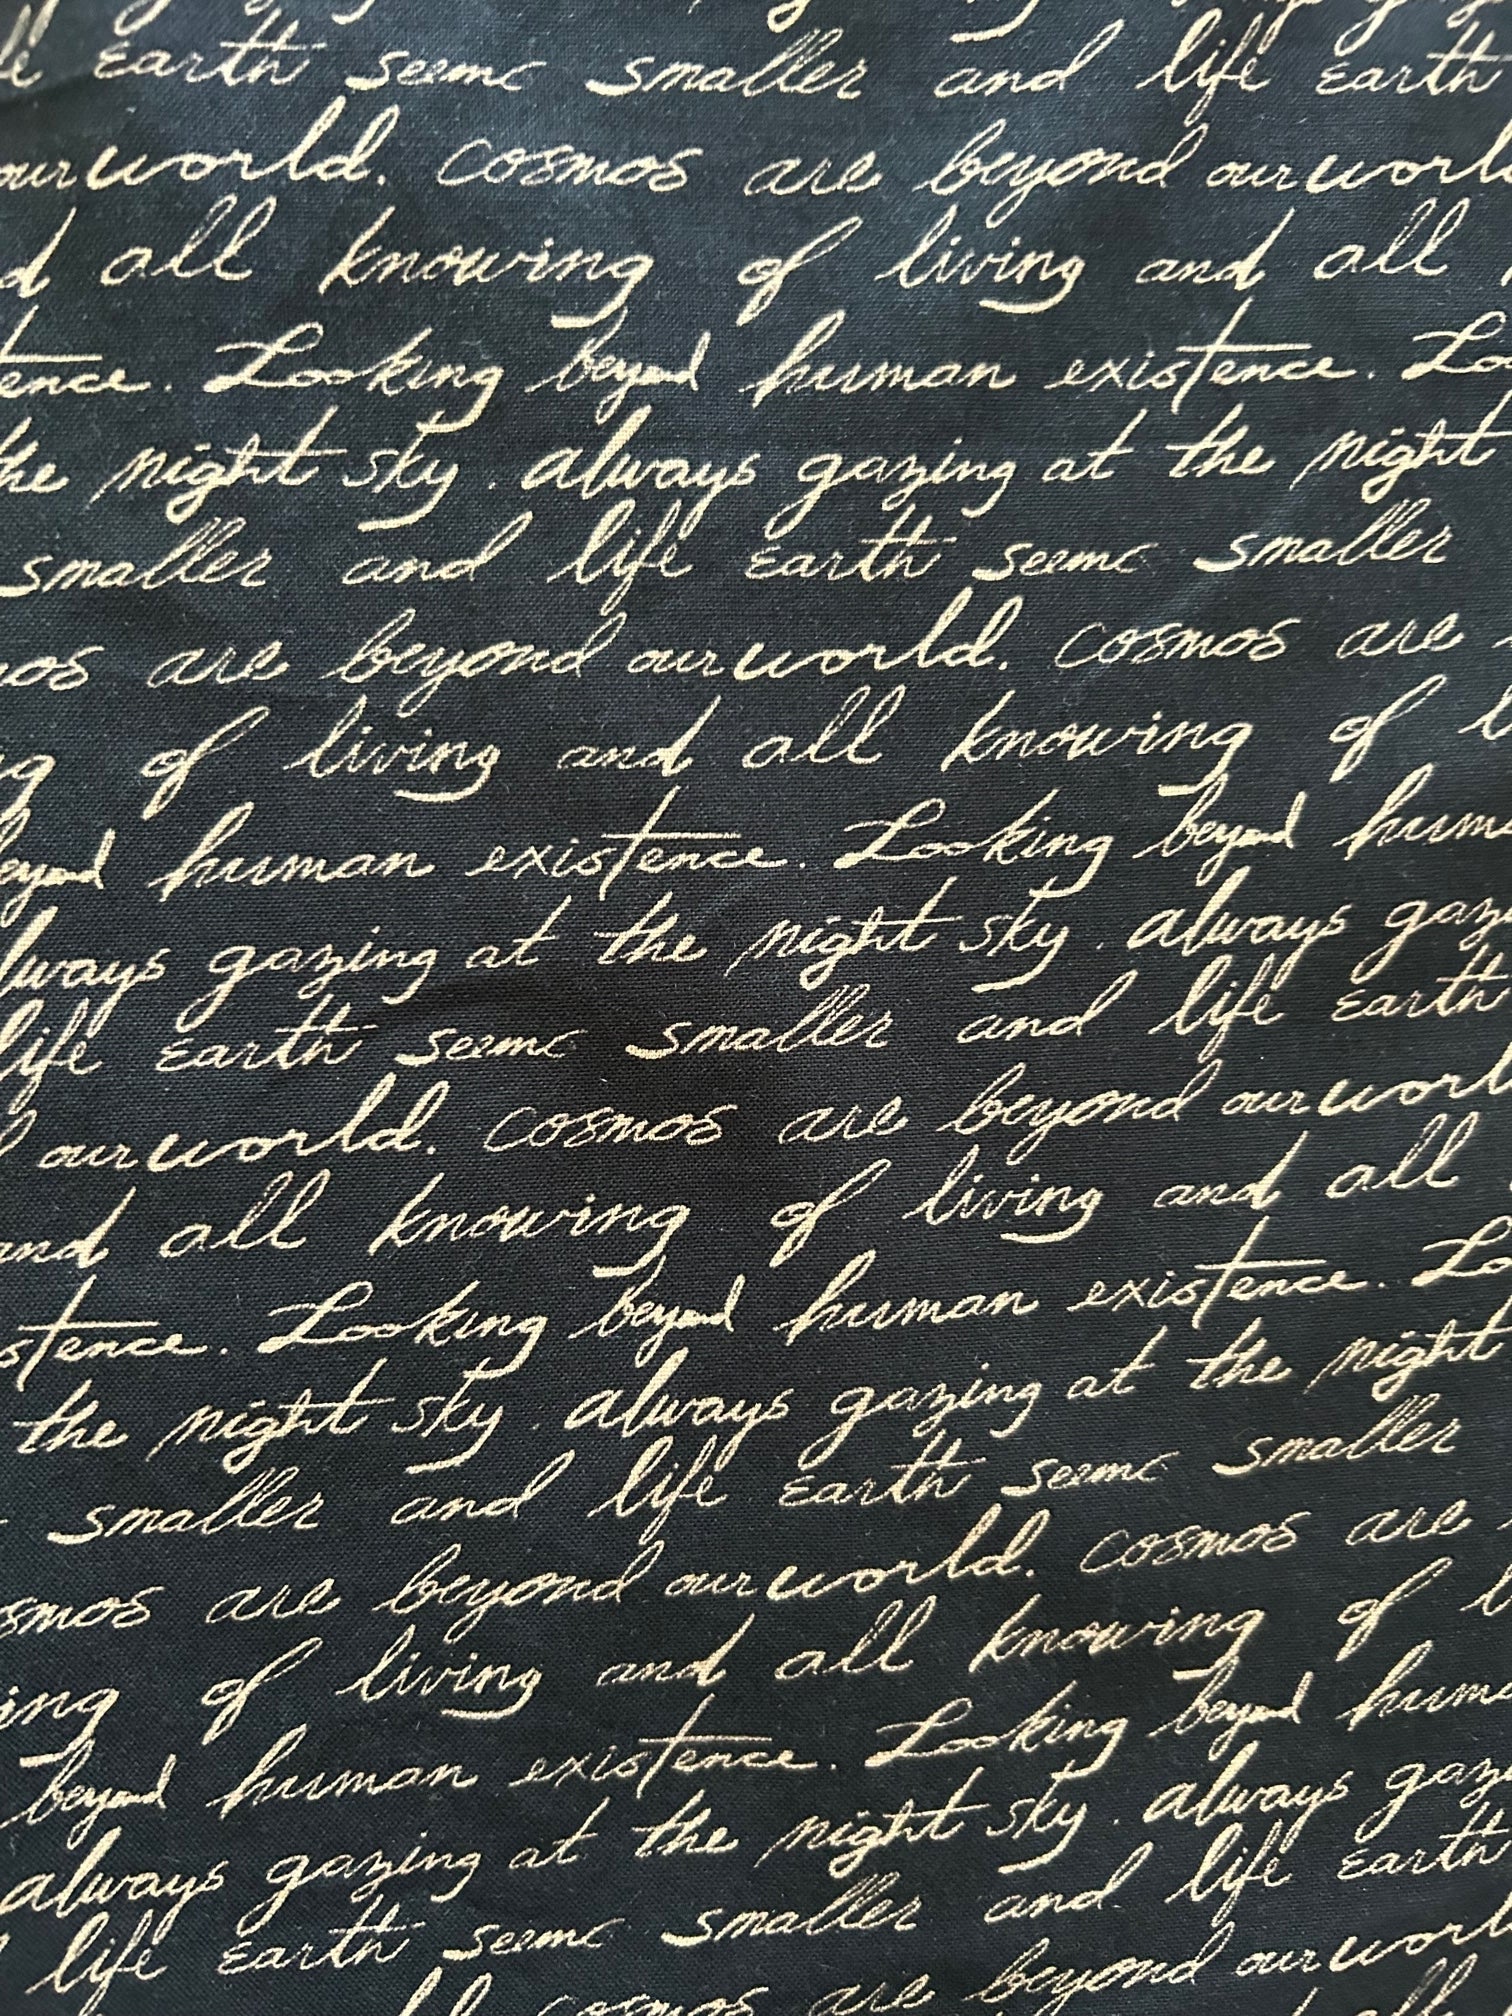 Earth seems smaller and life Earth
our world. cosmos are beyond our world
all knowing of living and all
tence. Looking beyond human existence. Lo
the night sky. always gazing at the night
smaller and life Earth seems smaller
mos are beyond our world. cosmos are
ng of living and all knowing of
beyond human existence. Looking beyond hum
lways gazing at the night sky. always gaz
life Earth seems smaller and life Earth
our world. cosmos are beyond our worl
and all knowing of living and all
stence. Looking beyond human existence. Lo
the night sky. always gazing at the night
smaller and life Earth seems smaller
smos are beyond our world. cosmos are
ing of living and all knowing of
beyond human existence. Looking beyond huma
always gazing at the night sky. always gaz
life Earth seems smaller and life Earth
cosmos are beyond our worl